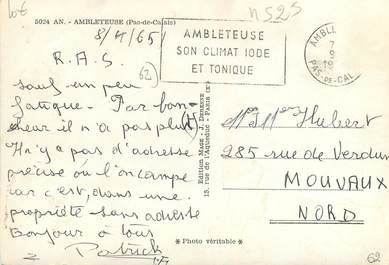 Lot
n525
5024 AN. - AMBLETEUSE (Pas-de-Calais)
8/4/65
AMBLETEUSE
SON CLIMAT IODE
ET TONIQUE
AMBLE
7
9
19
PAS-DE-CAL
R.A.S.
(62)
sauf un peu
fatigué. Par bon-
heur il n'a pas plu
Il n'y a pas d'adresse
précise où l'on campe
car c'est, dans une
propriété sans adresse
Bonjour à tous
Patrick
Edition Mage
15, rue de l'Aqueduc - Paris (Xe)
Mr Mme Hubert
285 rue de Verdun
MOUVAUX
NORD
* Photo véritable *
62